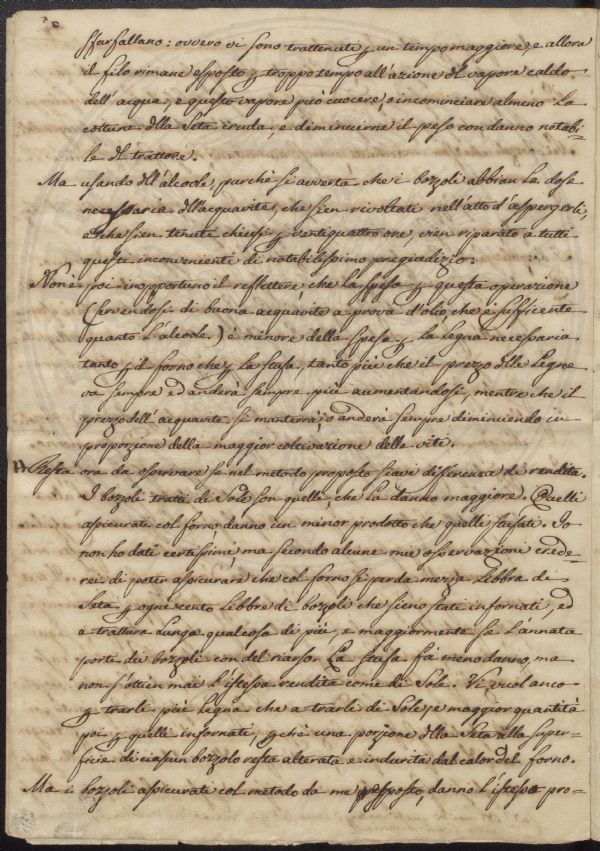 sfarfallano: ovvero vi sono trattenuti p un tempo maggiore, e allora
il filo rimane esposto p troppo tempo all'azione dl vapore caldo
dell'acqua, e questo vapore può cuocere, o incominciare almeno la
cottura dlla Seta cruda, e diminuirne il peso con danno notabi=
le dl trattore.
Ma usando dll'alcoole, purchè si avverta che i bozzoli abbian la dose
necessaria dll'acquavite, che sien rivoltati nell'atto d'aspergerli,
e che sien tenuti chiusi p ventiquattro ore, vien riparato a tutti
questi inconvenienti di notabilissimo pregiudizio.
Non è poi inopportuno il reflettere che la spesa p questa operazione
(servendosi di buona acquavite a prova d'olio, che è sufficente
quanto l'alcoole) è minore della spesa p la legna necessaria
tanto p il forno che p la stufa, tanto più che il prezzo dlle legne
va sempre ed anderà sempre più aumentandosi, mentre che il
prezzo dell'acquavite si manterrà, o anderà sempre diminuendo in
proporzione della maggior coltivazione delle viti.
Resta ora da osservare se nel metodo proposto siavi differenza di rendita.
I bozzoli tratti di Sole son quelli, che la danno maggiore. Quelli
assicurati col forno danno un minor prodotto che quelli stufati. Io
non ho dati certissimi, ma secondo alcune mie osservazioni crede=
rei di poter assicurare che col forno si perda mezza Libbra di
Seta p ogni cento Libbre di bozzoli che sieno stati infornati, ed
a trattura lunga qualcosa di più, e maggiormente se l'annata
porti dei bozzoli con del riarso. La stufa fà meno danno, ma
non s'ottien mai l'istessa rendita come di Sole. Vi vuol anco
p trarli più legna che a trarli di Sole, e maggior quantità
poi p quelli infornati, pchè una porzione dlla Seta alla super=
ficie di ciascun bozzolo resta alterata e indurita dal calor del forno.
Ma i bozzoli assicurati col metodo da me esposto, danno l'istesso pro=